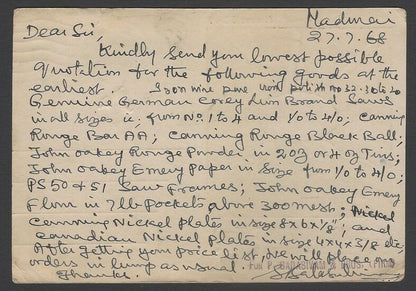 Madurai
27.7.68
Dear Sir,
Kindly send you lowest possible
Quotation for the following goods at the
earliest Iron wire pure non polish no 32. 30 to 20
Genuine German Corey Lion Brand Saws
in all sizes ie: from No. 1 to 4 and 1/0 to 4/0; Canning
Rouge Bar AA; Canning Rouge Black Ball;
John Oakey Rouge Powder in 2oz or 4oz Tins;
John Oakey Emery Paper in size from 1/0 to 4/0;
PS 50 & 51 Saw Frames; John Oakey Emery
Flour in 7 lb Pockets above 300 mesh;
Canning Nickel Plates in size 8 x 6 x 1/8"; and
Canadian Nickel Plates in size 4 x 4 x 3/8 etc
After getting your price list, we will place our
orders in lump as usual.
Thanks.
For P. & BROS.